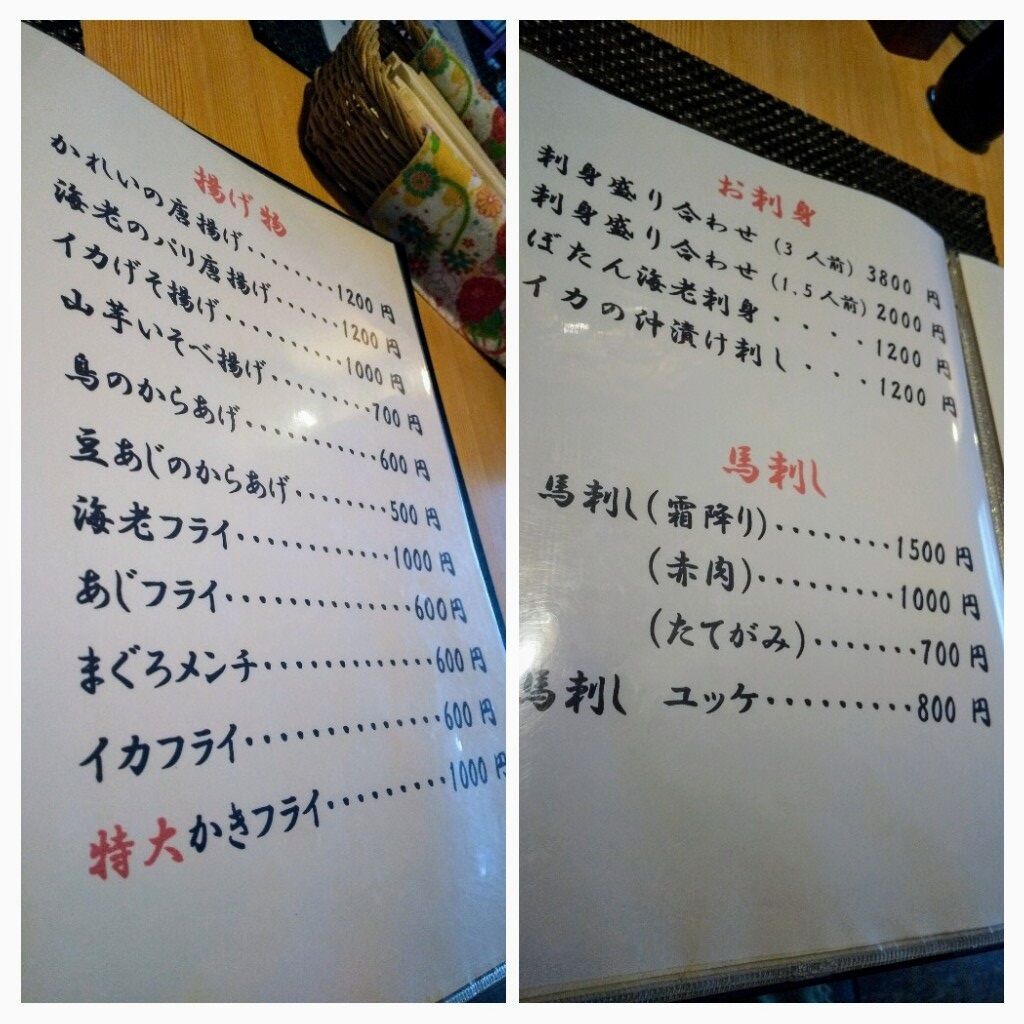 揚げ物
かれいの唐揚げ・・・・・・・・1200円
海老のバリ唐揚げ・・・・・・1200円
イカげそ揚げ・・・・・・・・・・1000円
山芋いそべ揚げ・・・・・・・・700円
鳥のからあげ・・・・・・・・・・600円
豆あじのからあげ・・・・・・・500円
海老フライ・・・・・・・・・・・・1000円
あじフライ・・・・・・・・・・・・・600円
まぐろメンチ・・・・・・・・・・・・600円
イカフライ・・・・・・・・・・・・・600円
特大かきフライ・・・・・・・・・1000円
お刺身
刺身盛り合わせ(3人前)3800円
刺身盛り合わせ(1.5人前)2000円
ぼたん海老刺身・・・・1200円
イカの沖漬け刺し・・・・1200円
馬刺し
馬刺し(霜降り)・・・・・・・・1500円
(赤肉)・・・・・・・・・1000円
(たてがみ)・・・・・・・700円
馬刺し ユッケ・・・・・・・・・800円